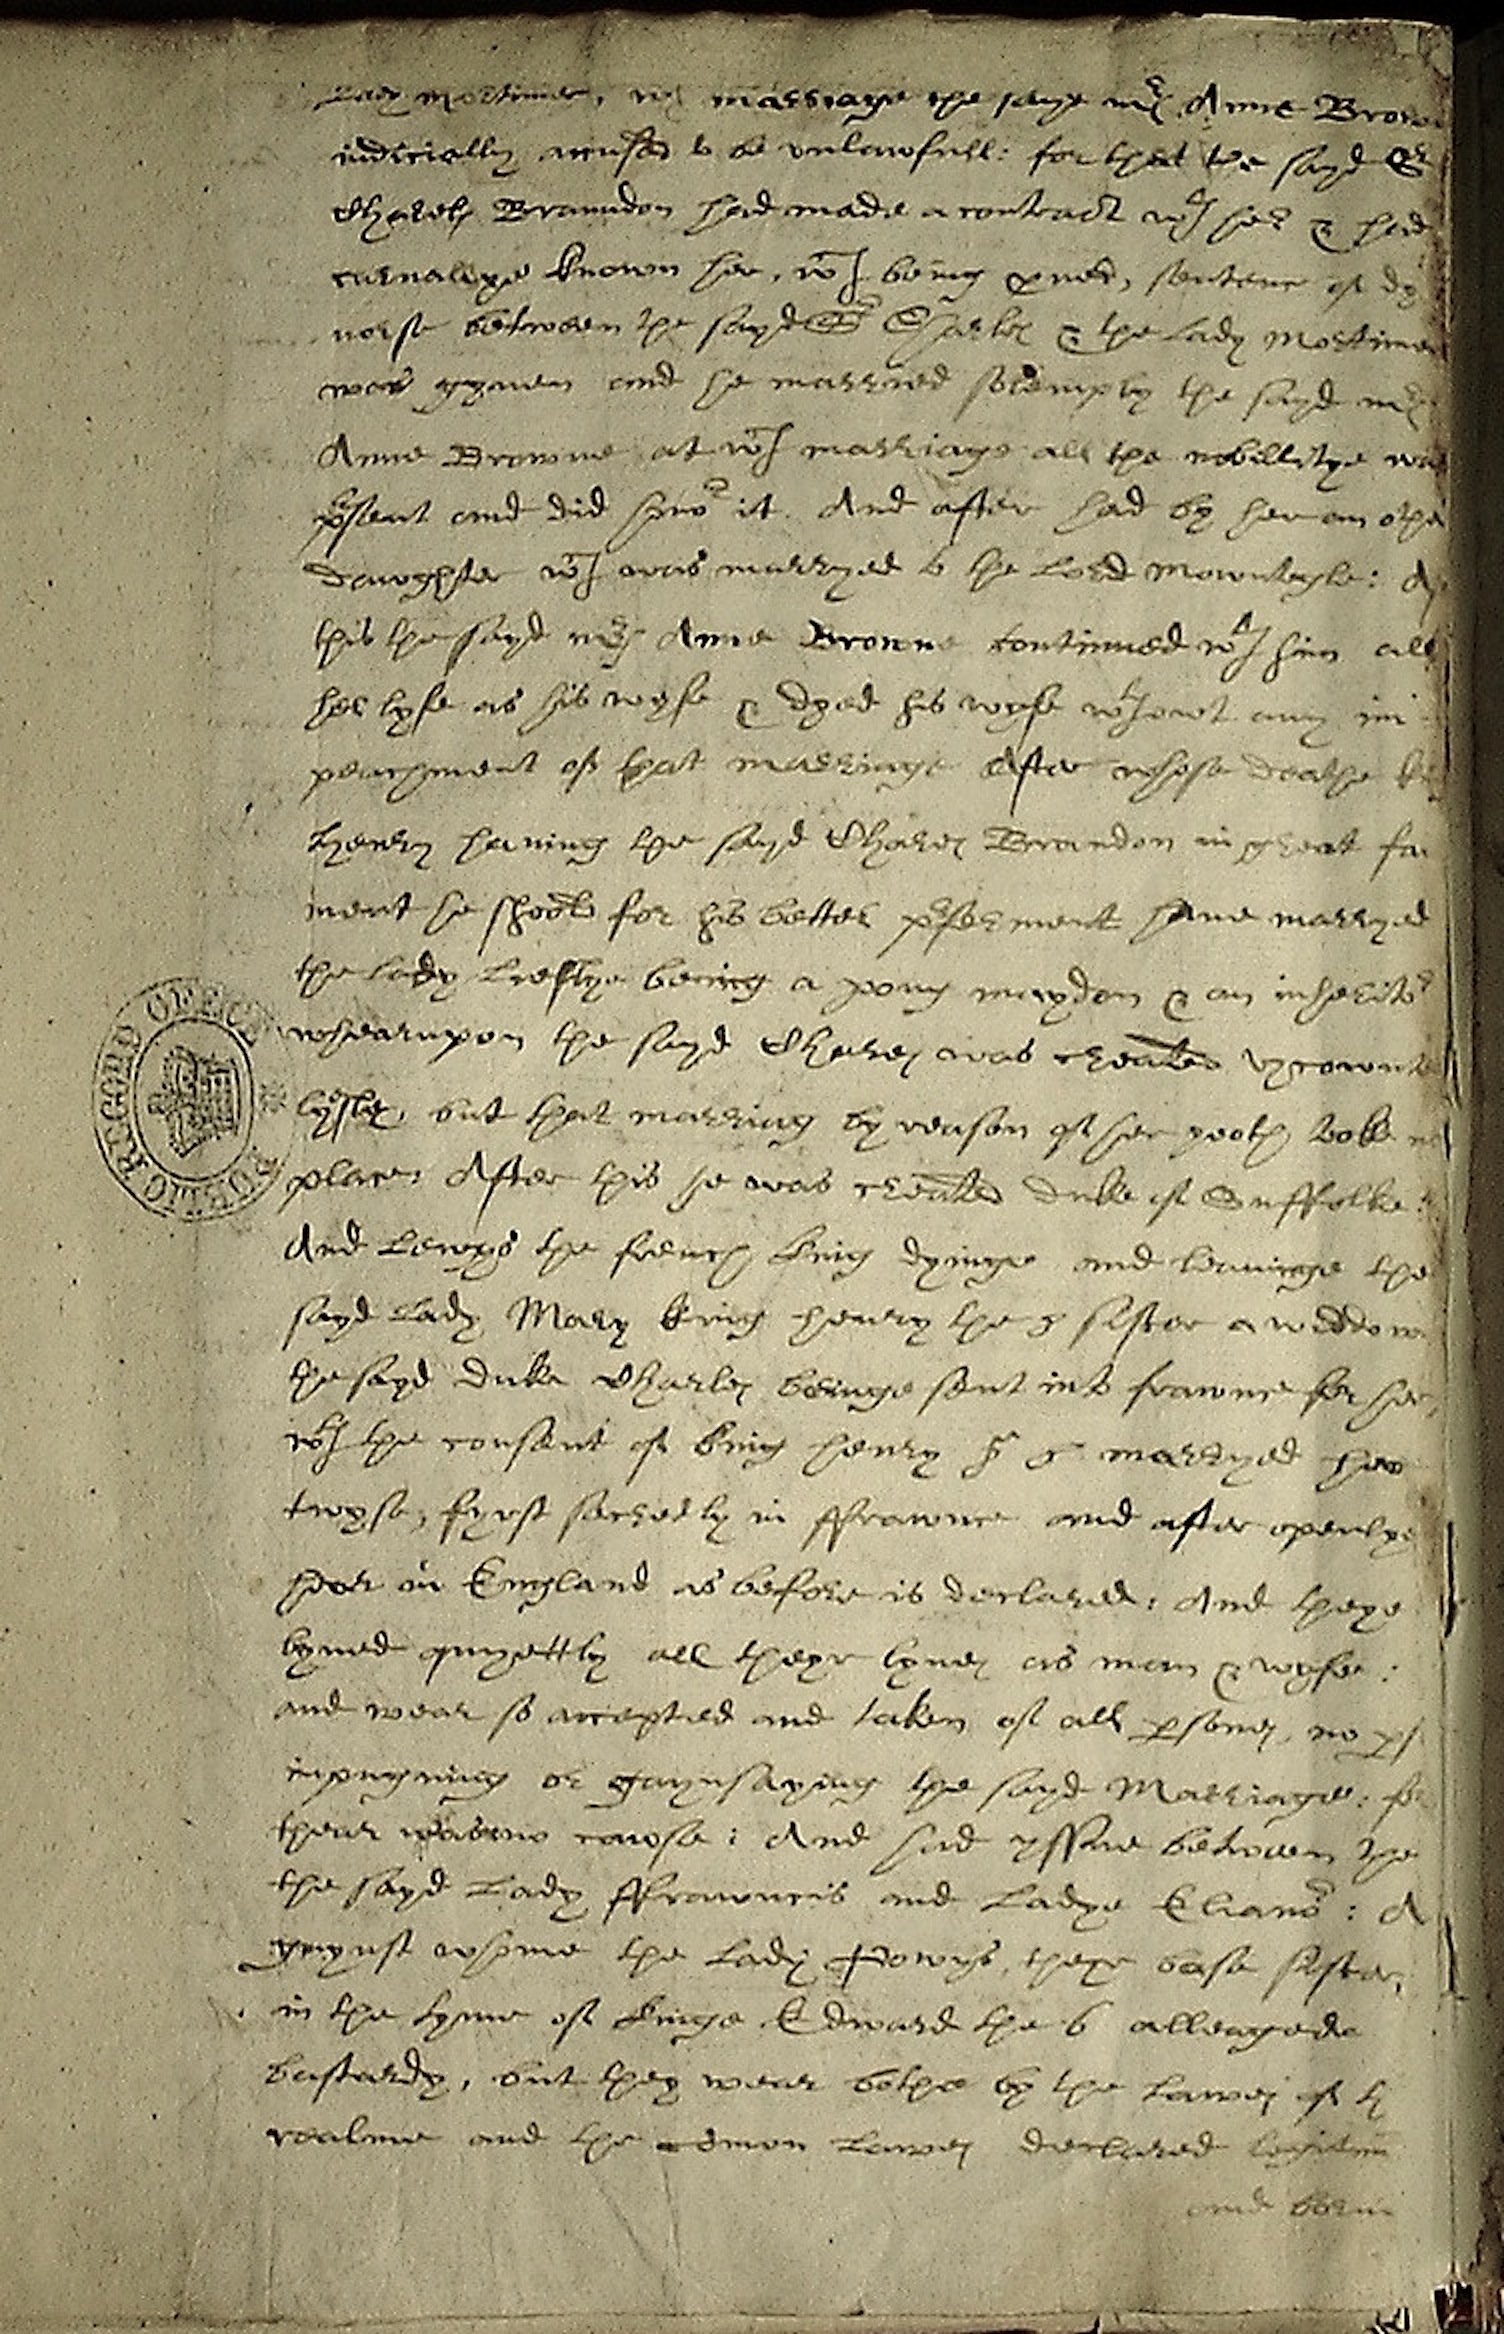 Lady Mortimer, wch marriage the sayd mrs Anne Brow
iudicially accused to be vnlawfull: for that the sayd Sr
Charles Branndon had made a contract wth her & had
carnallye known her, wch being proued, sentence of dy
uorse between the sayd Sr Charles & the Lady Mortimer
was gyuen and he married solemply the sayd mrs
Anne Browne at wch marriage all the nobillitye was
present and did honor it. And after had by her an othe
daughter wch was marryed to the Lord Mounteyle: A
this the sayd mrs Anne Browne continued wth him all
her lyfe as his wyfe & dyed his wyfe wthowt any im
peachment of that marriage After whose deathe
Henry hauing the sayd Charles Brandon in great fa
ment he shoold for his better preferment haue marryed
the lady being a yong mayden & an inheritor
whearupon the sayd Charles was created vycownt
but that marriag by reason of her yooth tooke no
place: After this he was created Duke of Suffolke:
And Lewys the french king dyinge and leauinge the
sayd Lady Mary king Henry the 8 sister a weddow
the sayd Duke Charles beinge sent into frawnce for her,
wth the consent of king Henry the 8 marryed her
twyse, fyrst secretly in ffrawnce and after openlye
hear in England as before is declared: And theye
lyued quyettly all theyr lyues as man & wyfe:
and wear so accepted and taken of all persons, no pers
inpugning or gaynsaying the sayd Marriage: for
thear was no cawse: And had yssue between the
the sayd Lady ffrawncis and Ladye Elianor: A
gaynst whome the Lady Powys, theyr base sister,
in the tyme of kinge Edward the 6 alleaged
bastardy, but they wear bothe by the Lawes of th
realme and the comon Lawes declared legittim
and born
PUBLIC RECORD OFFICE